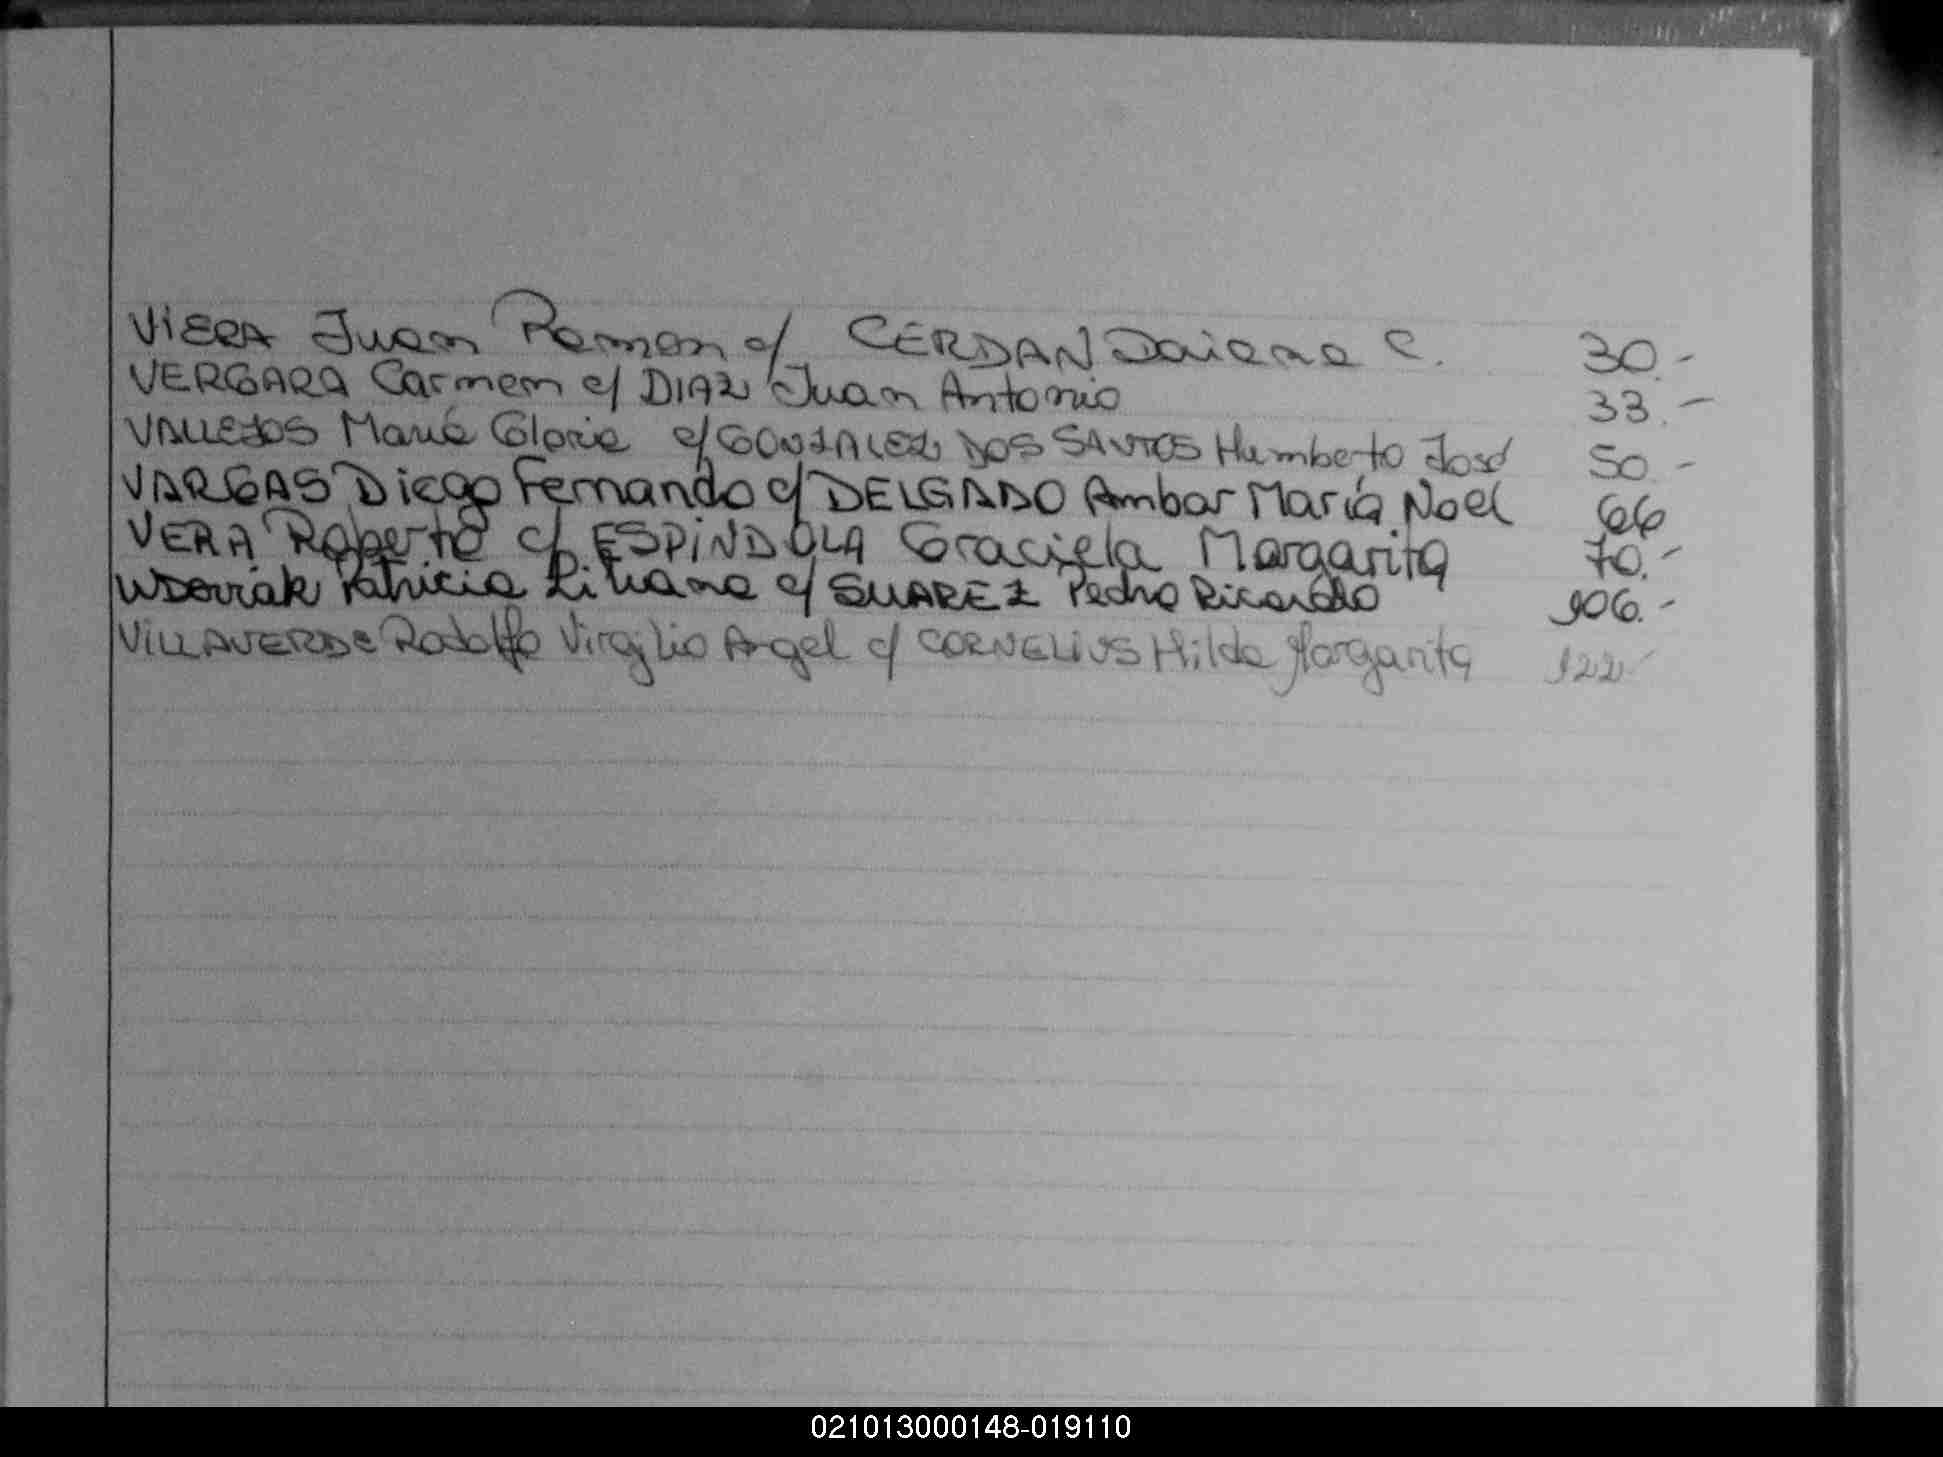 VIERA Juan Ramon c/ CERDAN Daiana C. 30.-
VERGARA Carmen c/ DIAZ Juan Antonio 33.-
VALLEJOS María Gloria c/ GONZALEZ DOS SANTOS Humberto José 50.-
VARGAS Diego Fernando c/ DELGADO Ambar María Noel 66
VERA Roberto c/ ESPINDOLA Graciela Margarita 70.-
Patricia Liliana c/ SUAREZ Pedro Ricardo 106.-
VILLAVERDE Rodolfo Virgilio Angel c/ CORNELIUS Hilda Margarita 122-
021013000148-019110